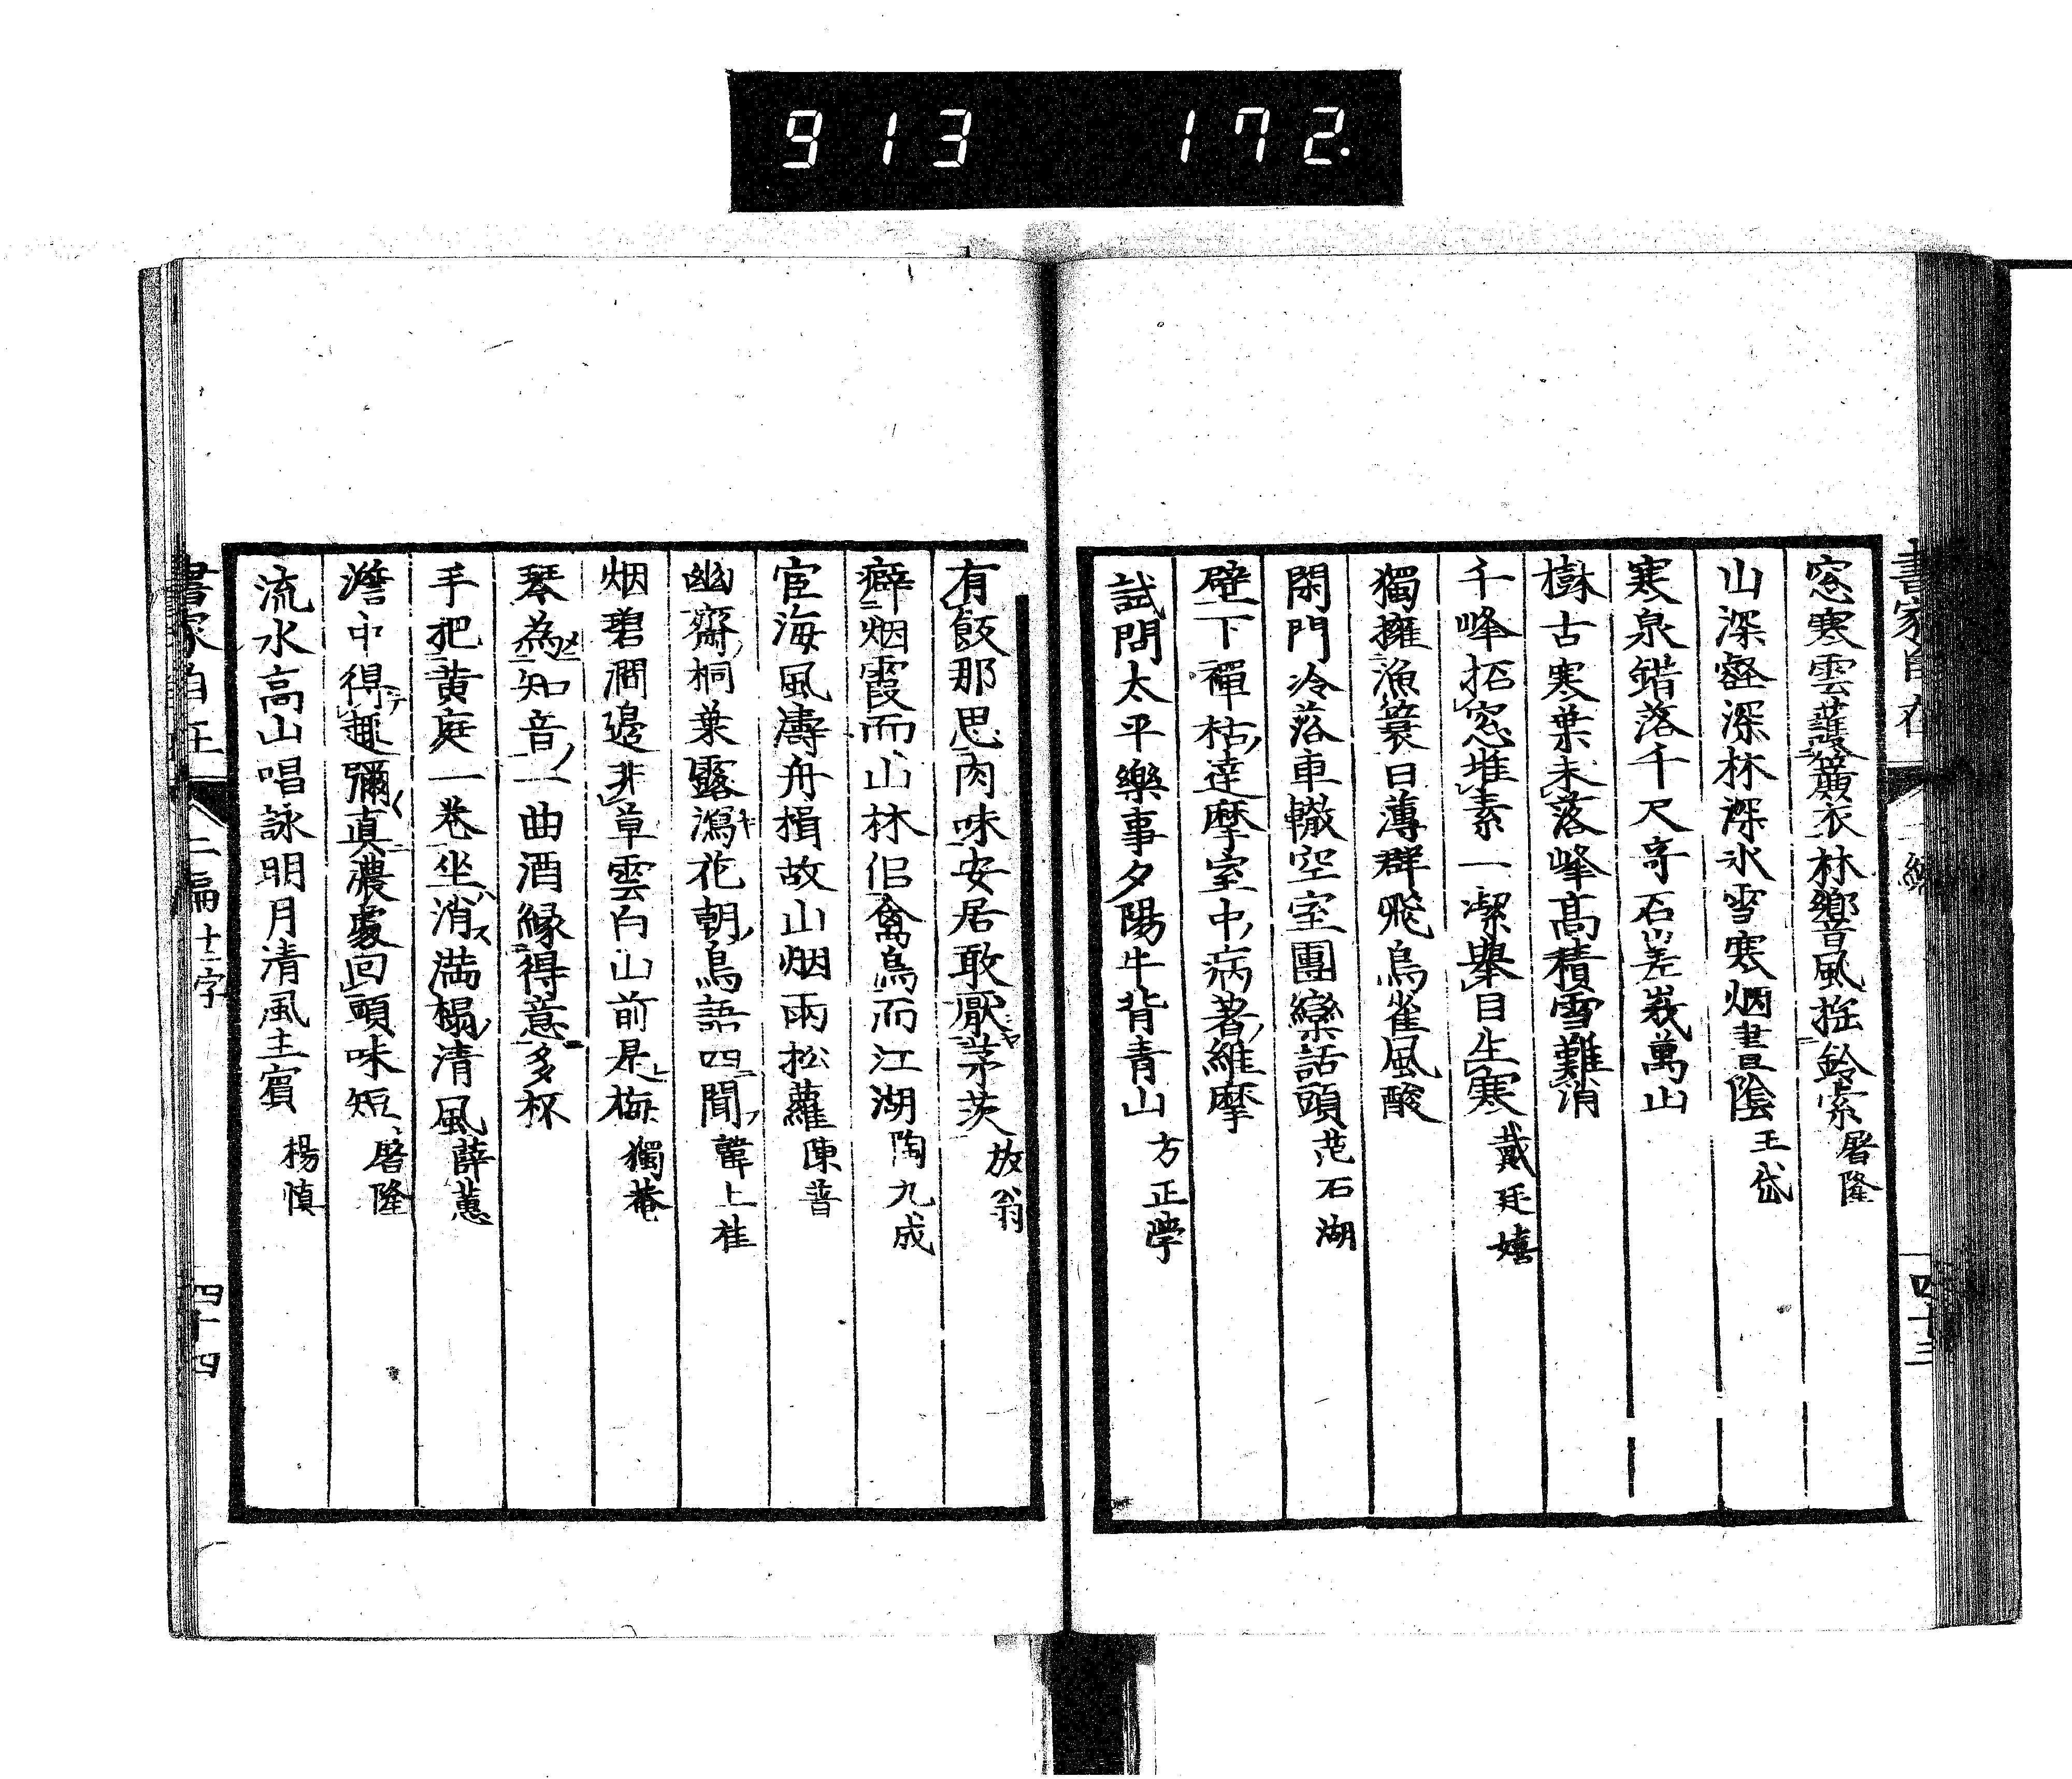 913 172.
窓寒雲護簑衣林響風搖鈴索 屠隆
山深壑深林深水雪寒烟晝陰 王岱
寒泉蜡落千尺奇石嵳峩萬山
樹古寒葉未落峰高積雪難消
千峰拓窓堆素一潔舉目生寒 戴廷嬉
獨擁漁簑日薄群飛烏雀風酸
閑門冷落車轍空室團欒話頭 范石湖
壁下禪枯達摩室中病著維摩
試問太平樂事夕陽牛背青山 方正學
有飯那思肉味安居敢厭茅茨 放翁
癖烟霞而山林侶禽鳥而江湖 陶九成
宦海風濤舟楫故山烟雨松蘿 陳普
幽齋桐葉露瀉花朝鳥語四聞 韓上桂
烟碧澗邊非草雲白山前是梅 獨菴
琴為知音一曲酒緣得意多杯
手把黄庭一卷坐消満榻清風 薛蕙
澹中得趣彌真濃處回頭味短 屠隆
流水高山唱詠明月清風主賓 楊慎
二編 十二字
四十四
四十三